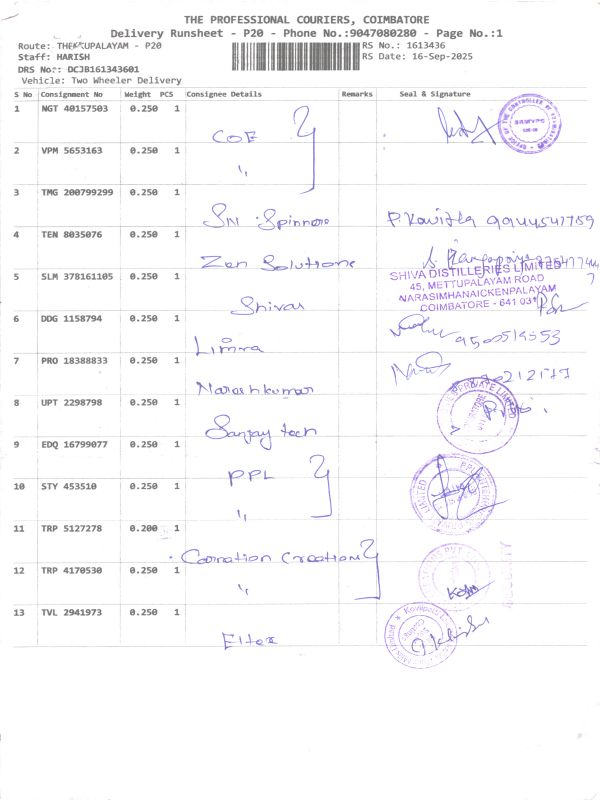 THE PROFESSIONAL COURIERS, COIMBATORE
Delivery Runsheet - P20 - Phone No.:9047080280 - Page No.:1
Route: THEKKUPALAYAM - P20
RS No.: 1613436
Staff: HARISH
RS Date: 16-Sep-2025
DRS No.: DCJB161343601
Vehicle: Two Wheeler Delivery
S No Consignment No Weight PCS Consignee Details Remarks Seal & Signature
1 NGT 40157503 0.250 1 COE
2 VPM 5653163 0.250 1 "
3 TMG 200799299 0.250 1 Sri Spinners P. Kavitha 9944541759
4 TEN 8035076 0.250 1 Zen Solutions
5 SLM 378161105 0.250 1 Shivas
SHIVA DISTILLERIES LIMITED
45, METTUPALAYAM ROAD
NARASIMHANAICKENPALAYAM
COIMBATORE - 641 031
6 DDG 1158794 0.250 1 Limra 9500519553
7 PRO 18388833 0.250 1 Nareshkumar
8 UPT 2298798 0.250 1 Sanjay tech
PRIVATE LIMITED
9 EDQ 16799077 0.250 1 PPL
10 STY 453510 0.250 1 "
11 TRP 5127278 0.200 1 Coronation Creation
12 TRP 4170530 0.250 1 "
13 TVL 2941973 0.250 1 Eltex